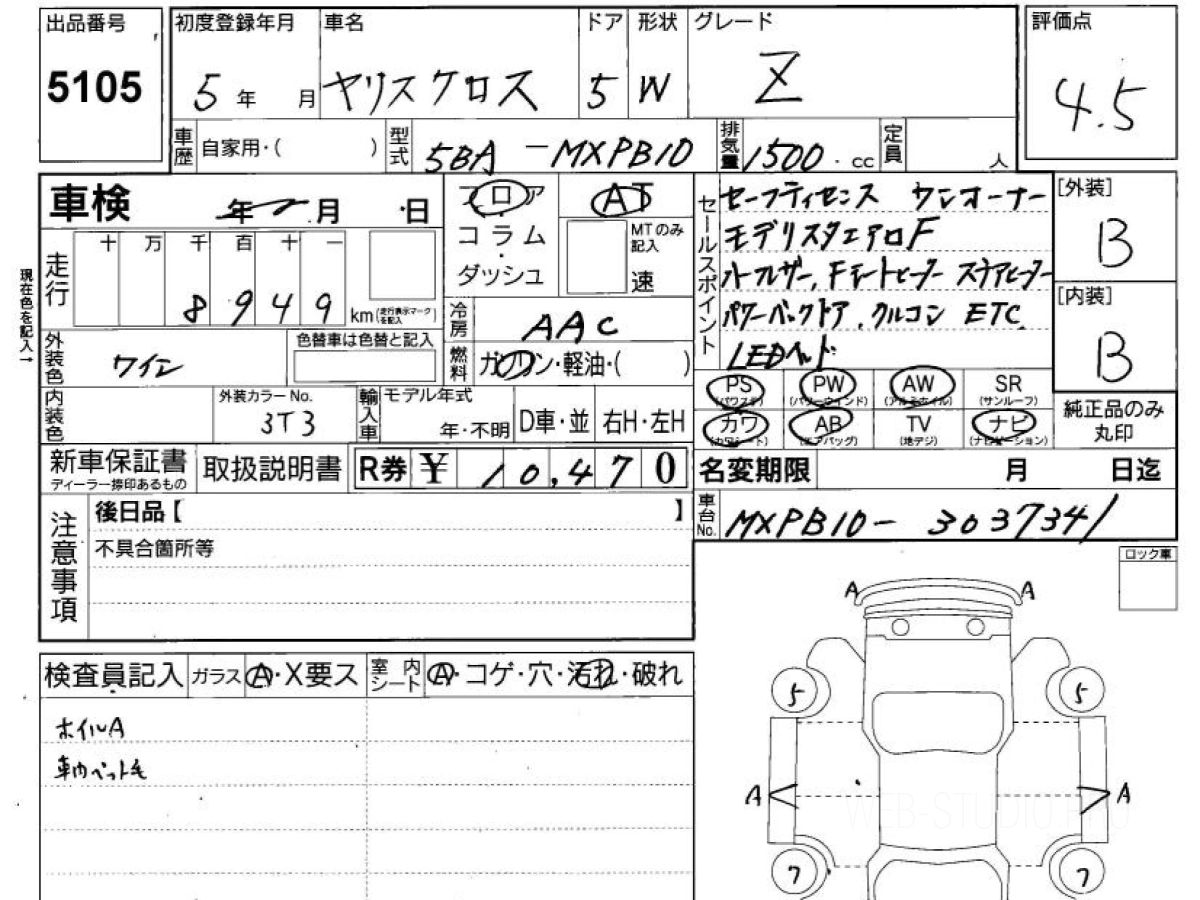 出品番号
5105
初度登録年月 車名 ドア 形状 グレード
5年 月 ヤリスクロス 5 W Z
評価点
4.5
車歴 自家用・( ) 型式 5BA-MXPB10 排気量 1500.cc 定員 人
車検 年 月 日
フロア
コラム
ダッシュ
AT
MTのみ記入
速
走行 十 万 千 百 十 一
8 9 4 9 km(走行表示マークを記入)
現在色を記入→
冷房 AAC
燃料 ガソリン・軽油・( )
外装色 ワイン
色替車は色替と記入
内装色
外装カラーNo.
3T3
輸入車 モデル年式
年・不明 D車・並 右H・左H
セールスポイント
セーフティセンス ワンオーナー
モデリスタエアロF
ハーフレザー, Fシートヒーター ステアヒーター
パワーバックドア, クルコン ETC
LEDヘッド
[外装]
B
[内装]
B
PS (パワステ) PW (パワーウインド) AW (アルミホイル) SR (サンルーフ)
カワ (カワシート) AB (エアバッグ) TV (地デジ) ナビ (ナビゲーション)
純正品のみ丸印
新車保証書 ディーラー捺印あるもの
取扱説明書
R券 ¥ 10,470
名変期限 月 日迄
車台No. MXPB10-3037341
注意事項
後日品【 】
不具合箇所等
ロック車
検査員記入 ガラス A・X要ス 室内シート A・コゲ・穴・汚れ・破れ
ホイルA
車内ペット毛
A A
5 5
A A
7 7
WEB-STUDIO.PRO